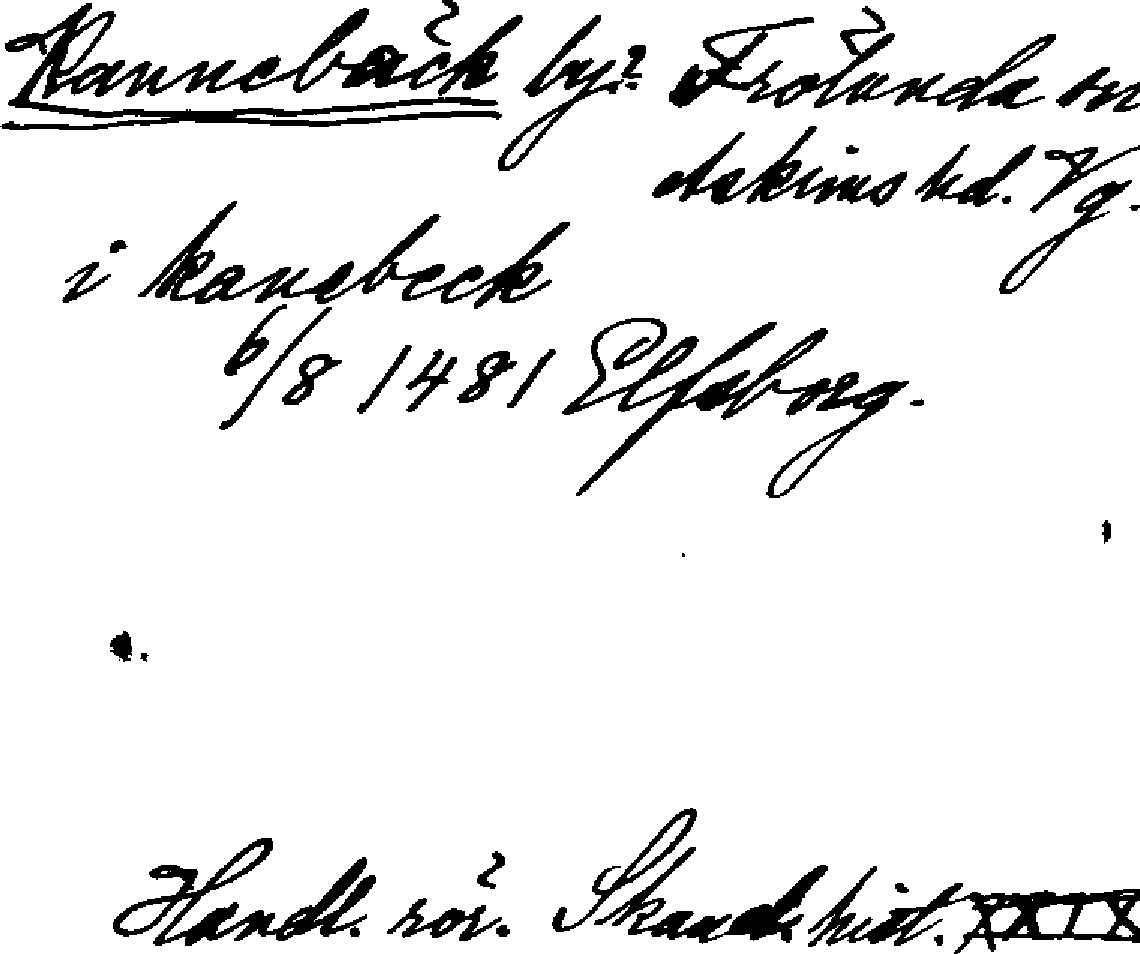 Kannebäck by? Frölunda sn
Askims hd. Vg.
i kanebeck
6/8 1481 Elfsborg.
Handl. rör. Skand. hist. XXIX